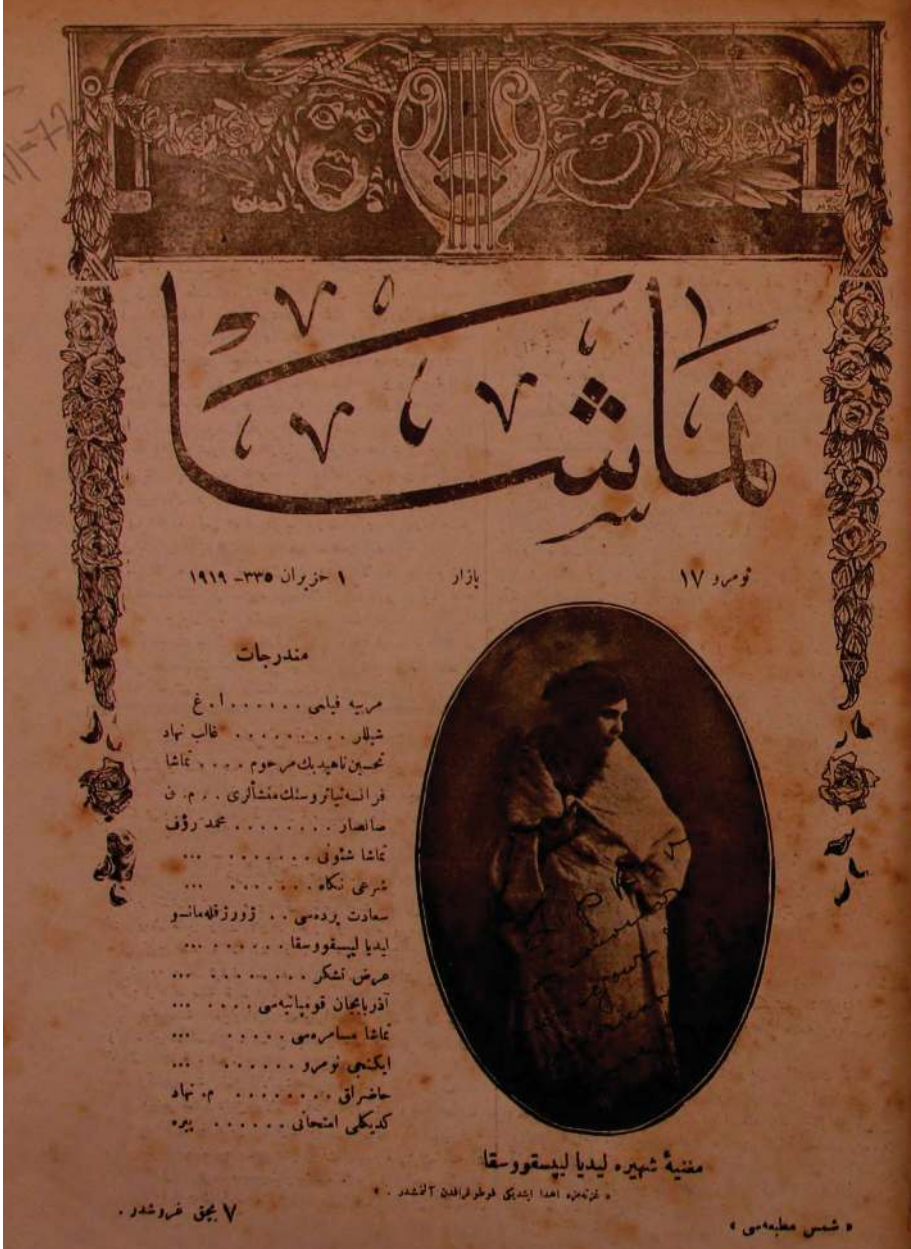 تماشا
نومرو ١٧ بازار ١ حزيران ٣٣٥- ١٩١٩
مندرجات
مربيه فيلمى . . . . . . ا . غ
شيللر . . . . . . . . . غالب نهاد
تحسين ناهيد بك مرحوم . . . . تماشا
فرانسه تياتروسنك منشألرى . . م . ق
صانصار . . . . . . . . محمد رؤف
تماشا شئونى . . . . . . . ...
شرعى نكاه . . . . . . . ...
سعادت پرده‌سى . . ژورژ قله‌مانسو
ليديا ليپسقووسقا . . . . . . ...
عرض تشكر . . . . . . . . ...
آذربايجان قومپانيه‌سى . . . . ...
تماشا مسامره‌سى . . . . . ...
ايكنجى نومرو . . . . . . ...
حاضرلق . . . . . . . . م . نهاد
كديكلى امتحانى . . . . . . پيره
مغنيهٔ شهيره ليديا ليپسقووسقا
« غزته‌مزه اهدا ايتديكى فوطوغرافدن آلنمشدر . »
٧ بچق غروشدر .
« شمس مطبعه‌سى »